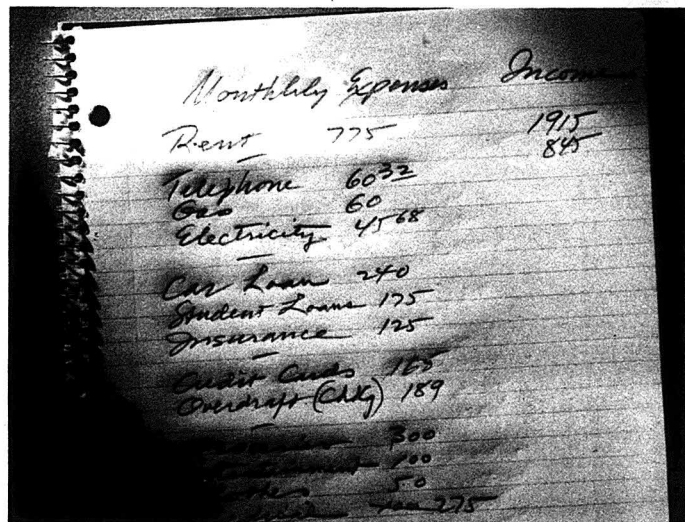 Monthlily Expenses Income
Rent 775 1915
845
Telephone 60 32
Gas 60
Electricity 45 68
Car Loan 240
Student Loans 175
Insurance 125
Credit Cards 165
Overdraft (Chkg) 189
300
100
50
275